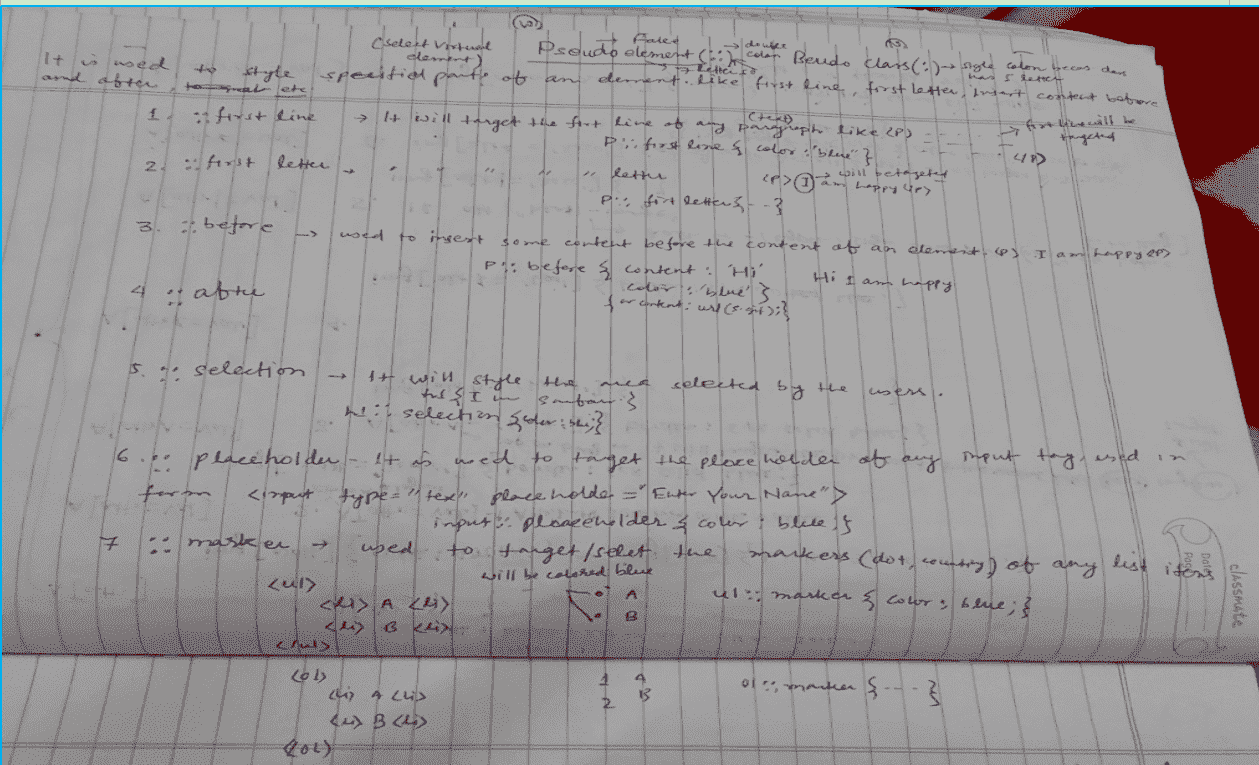 (10)
(select virtual element)
Pseudo element (::) → double colon
→ Faked
→ letters
Pseudo class (:) → single colon becoz class has 5 letter
It is used to style specified parts of an element. like first line, first letter, insert content before
and after, etc
1. ::first line → It will target the first line of any (text) paragraph like <p> - - - - → first line will be targeted
- - - - </p>
p::first line { color : "blue" }
2. ::first letter → " " " " " letter <p> I → will be targeted
am happy </p>
p:: first letter { - - }
3. ::before → used to insert some content before the content of an element. <p> I am happy </p>
p:: before { content : 'Hi' Hi I am happy
color : 'blue' }
{ or content : url(s.gif); }
4 ::after
5. :: selection → It will style the area selected by the users.
h1 { I am }
h1:: selection { color : blue; }
6. :: placeholder - It is used to target the placeholder of any input tag, used in
form <input type="text" placeholder = "Enter Your Name">
input:: placeholder { color : blue ; }
7 :: marker → used to target/select the markers (dot, country) of any list items
will be colored blue
<ul>
<li> A <li> • A ul:: marker { color : blue; }
<li> B <li> • B
</ul>
classmate
Date
Page
<ol>
<li> A <li> 1 A ol::marker { - - - }
<li> B <li> 2 B
<ol>